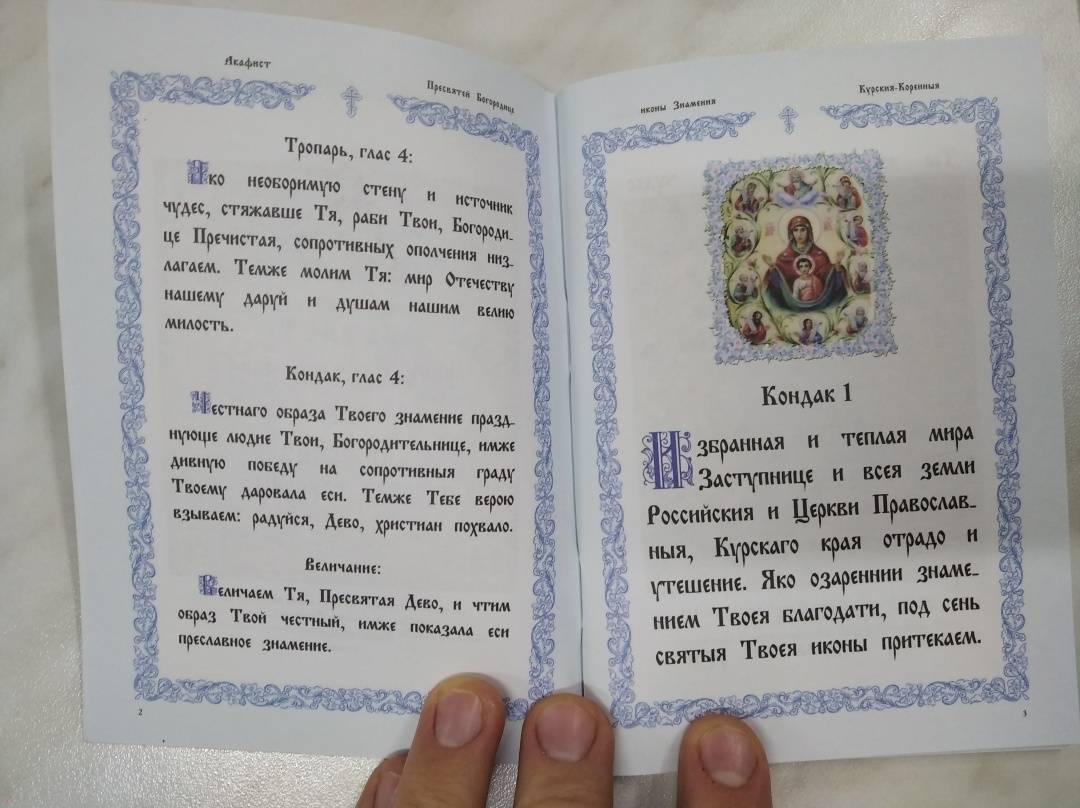 Акафист
Пресвятей Богородице
Тропарь, глас 4:
Яко необоримую стену и источник
чудес, стяжавше Тя, раби Твои, Богороди-
це Пречистая, сопротивных ополчения низ-
лагаем. Темже молим Тя: мир Отечеству
нашему даруй и душам нашим велию
милость.
Кондак, глас 4:
Честнаго образа Твоего знамение празд-
нующе людие Твои, Богородительнице, имже
дивную победу на сопротивныя граду
Твоему даровала еси. Темже Тебе верою
взываем: радуйся, Дево, христиан похвало.
Величание:
Величаем Тя, Пресвятая Дево, и чтим
образ Твой честный, имже показала еси
преславное знамение.
2
иконы Знамения
Курския-Коренныя
Кондак 1
Избранная и теплая мира
Заступнице и всея земли
Российския и Церкви Православ-
ныя, Курскаго края отрадо и
утешение. Яко озареннии знаме-
нием Твоея благодати, под сень
святыя Твоея иконы притекаем.
3